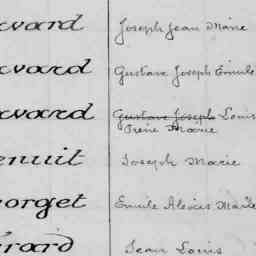 vard Joseph Jean Marie
vard Gustave Joseph Emile
vard Gustave Joseph Louis
René Marie
enuit Joseph Marie
orget Emile Alexis Marie
rard Jean Louis